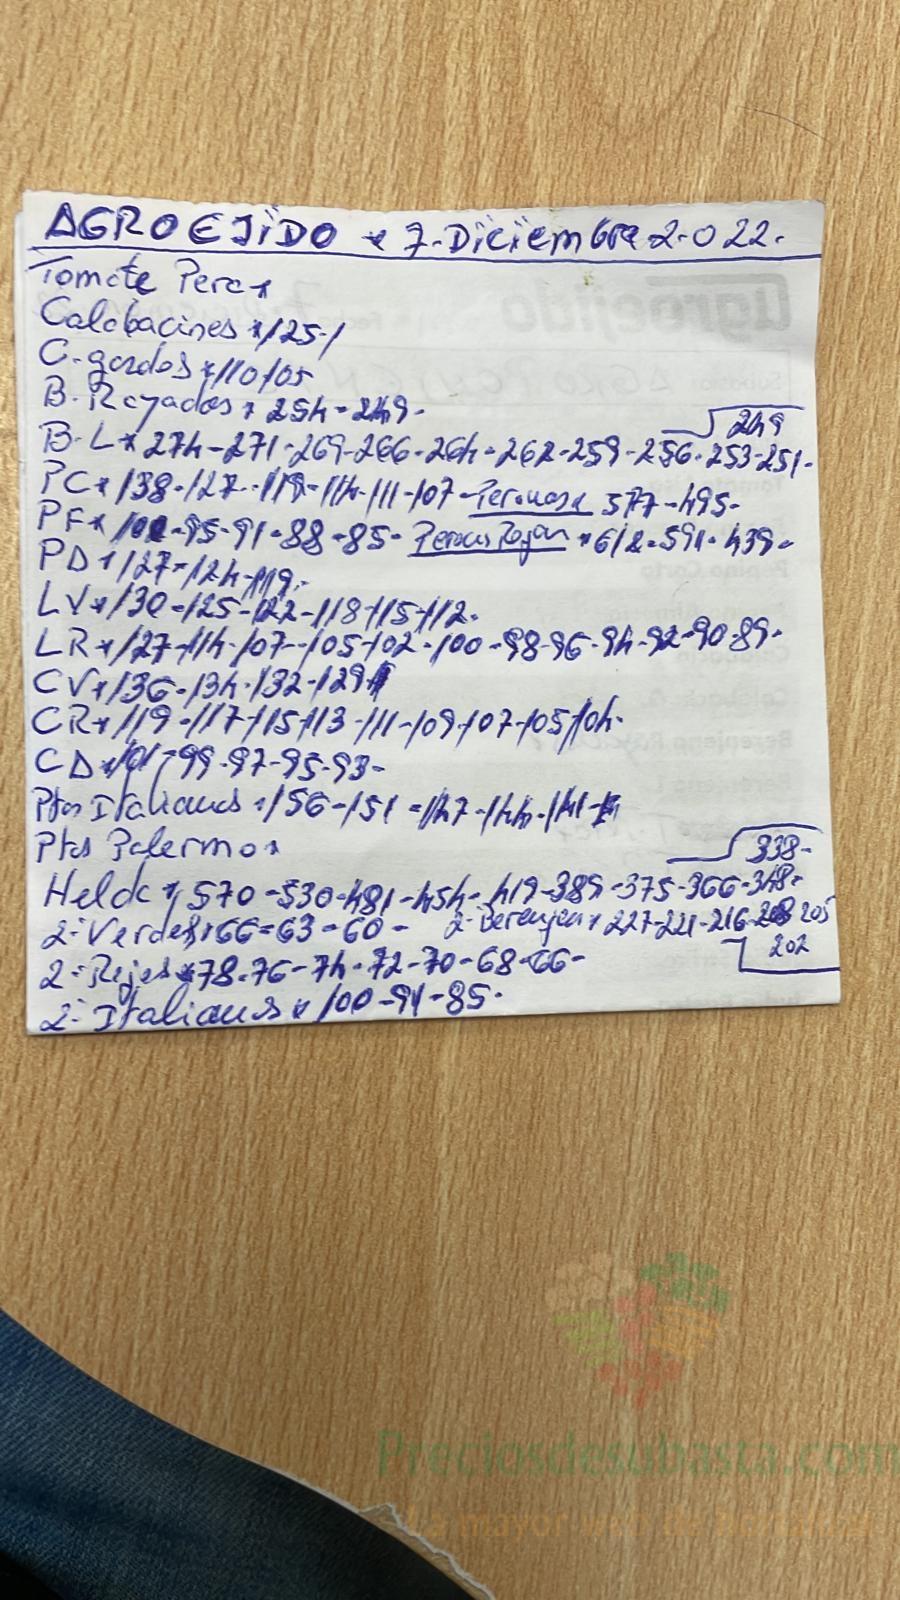 AGROEJIDO * 7-Diciembre-2.022.
Tomate Pera *
Calabacines * 125-1
C. gordos * 110-105
B. Rayados * 254-249-
B-L * 274-271-269-266-264-262-259-256-253-251-249
PC * 138-127-119-114-111-107- Peronas * 577-495-
PF * 95-91-88-85- Peronas Rojan * 612-591-439-
PD * 127-124-119-
LV * 130-125-122-118-115-112.
LR * 127-114-107-105-102-100-98-96-94-92-90-89-
CV * 136-134-132-129
CR * 119-117-115-113-111-109-107-105-104-
CD * 101-99-97-95-93-
Ptos Italianos * 156-151-147-144-141-
Ptos Palermo *
Helda * 570-530-481-454-419-389-375-366-348-338-
2- Verdes * 66-63-60- 2- Berenjena * 227-221-216-208-205
202
2- Rojos * 78-76-74-72-70-68-66-
2- Italianos * 100-91-85-
Preciosdesubasta.com
La mayor web de hortalizas